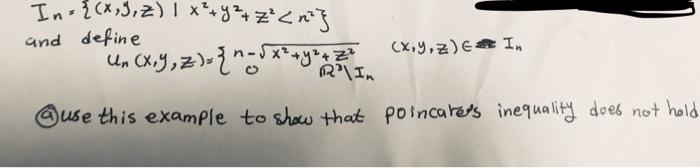 In = {(x,y,z) | x²+y²+z² < n²}
and define
un (x,y,z) = { n-√x²+y²+z² (x,y,z) ∈ In
0 ℝ³\In
ⓐ use this example to show that poincare's inequality does not hold